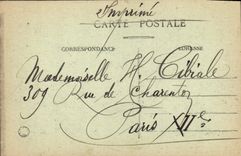 Imprimé
CARTE POSTALE
CORRESPONDANCE ADRESSE
Mademoiselle H. Cibiale
309 Rue de Charenton
Paris XIIe